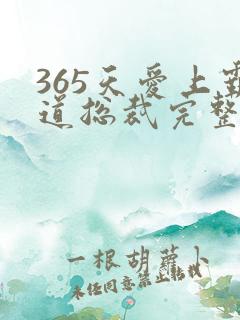 365天爱上霸
道总裁完整
一根胡萝卜
未经同意禁止转载